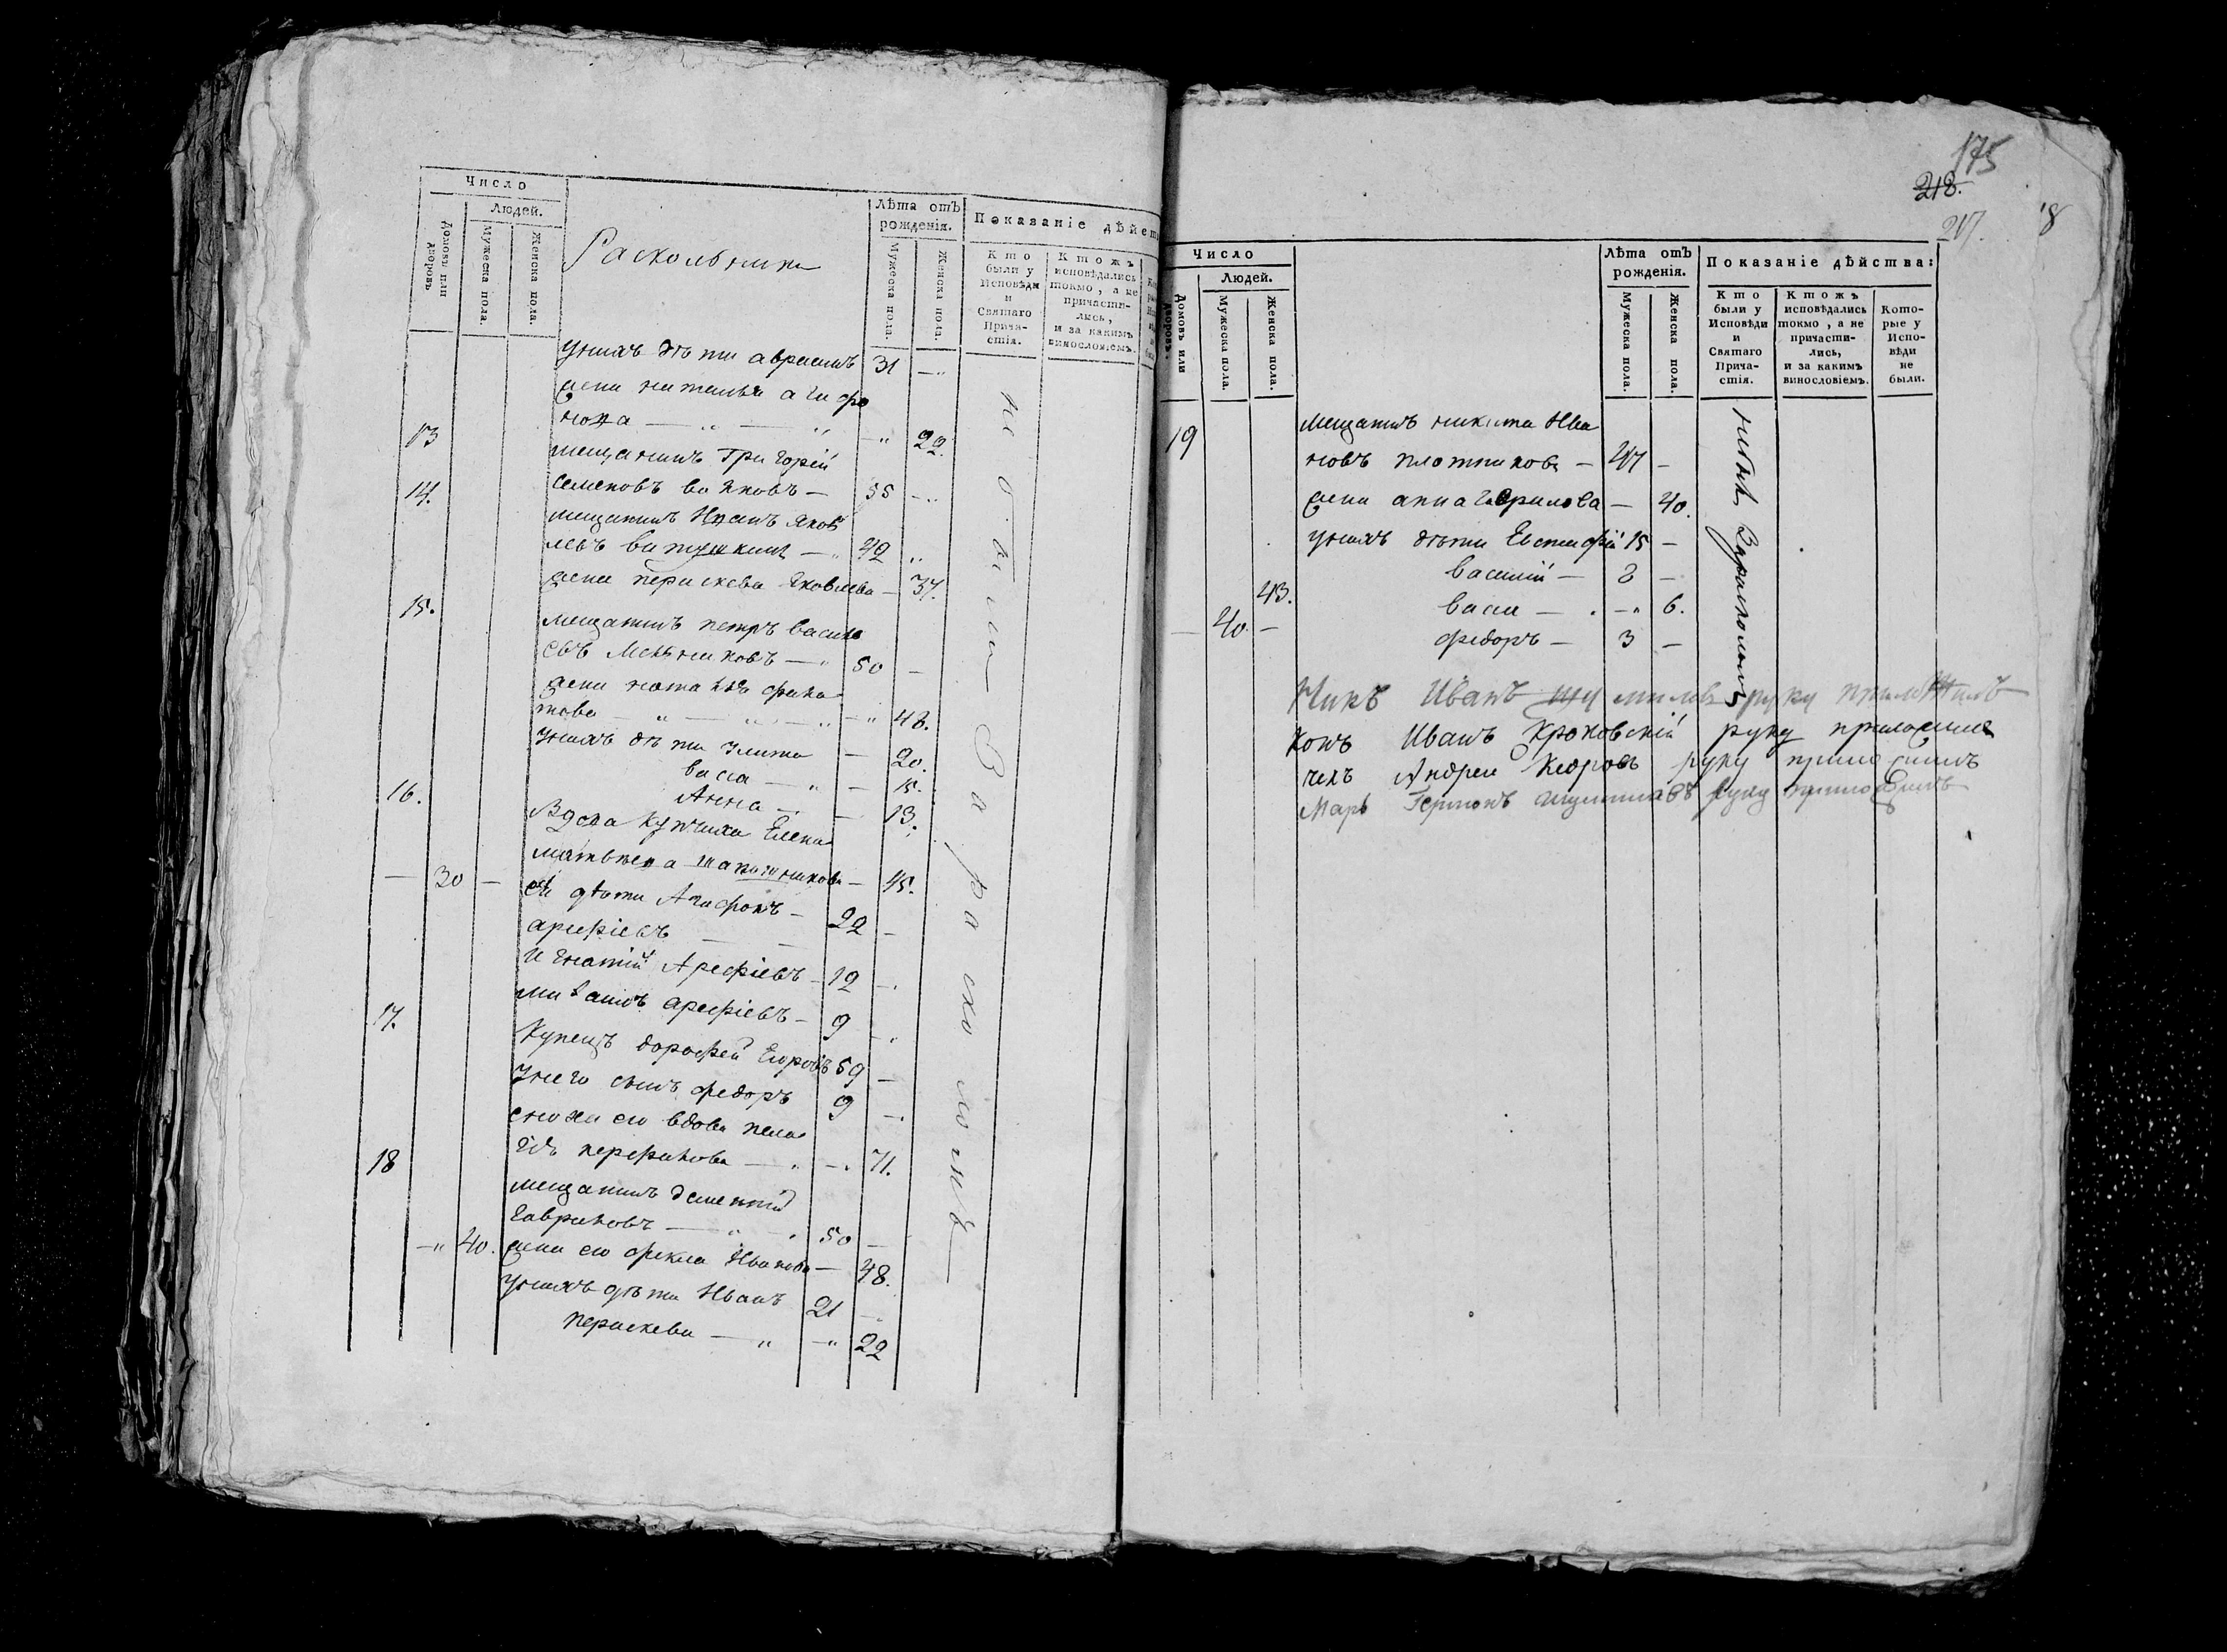 Число
Людей.
Домовъ или дворовъ
Мужеска пола.
Женска пола.
Раскольники
Лѣта отъ рожденія.
Мужеска пола.
Женска пола.
Показаніе дѣйст
Кто были у Исповѣди и Святаго Прича-стія.
Ктожъ исповѣдались токмо, а не причасти-лись, и за какимъ винословіемъ.
унихъ дѣти авраамъ 31 —
жена наталья агафо
нова — — 22.
13 мещанинъ Григорей
семеновъ — 55 —
14. мещанинъ Иванъ яков
левъ — 42
жена параскева яковлева — 37.
15. мещанинъ петръ василь
евъ Мельниковъ — 50 —
жена
това — — 48.
унихъ дѣти улита — 20.
васса — — 15.
Анна — — 13.
16. Вдова купчиха Елена
матвѣева — 45.
— 30 — ея дѣти Агафонъ — 22 —
арефіевъ — —
Игнатій Арефіевъ — 19 —
арефіевъ — 9
17. Купецъ дорофей Егоровъ 59 —
унего сынъ федоръ 9 —
сноха его вдова пела
гѣя — — 71.
18 мещанинъ
гавриловъ — 50 —
— 40. жена его фекла Иванова — 48.
унихъ дѣти Иванъ 21 —
параскева — — 22
не были За расколомъ
175
218.
217. 8
Число
Людей.
Домовъ или дворовъ.
Мужеска пола.
Женска пола.
Лѣта отъ рожденія.
Мужеска пола.
Женска пола.
Показаніе дѣйства:
Кто были у Исповѣди и Святаго Прича-стія.
Ктожъ исповѣдались токмо, а не причасти-лись, и за какимъ винословіемъ.
Кото-рые у Испо-вѣди не были.
19 мещанинъ никита Ива
новъ плотниковъ — 47 —
жена анна гаврилова — 40.
унихъ дѣти Евстафій 15 —
василій — 8 —
43. васса — — 6.
— 40. — федоръ — 3 —
За расколомъ
Иванъ руку приложилъ
Иванъ Кроковскій руку приложилъ
Андрей Кедровъ руку приложилъ
руку приложилъ